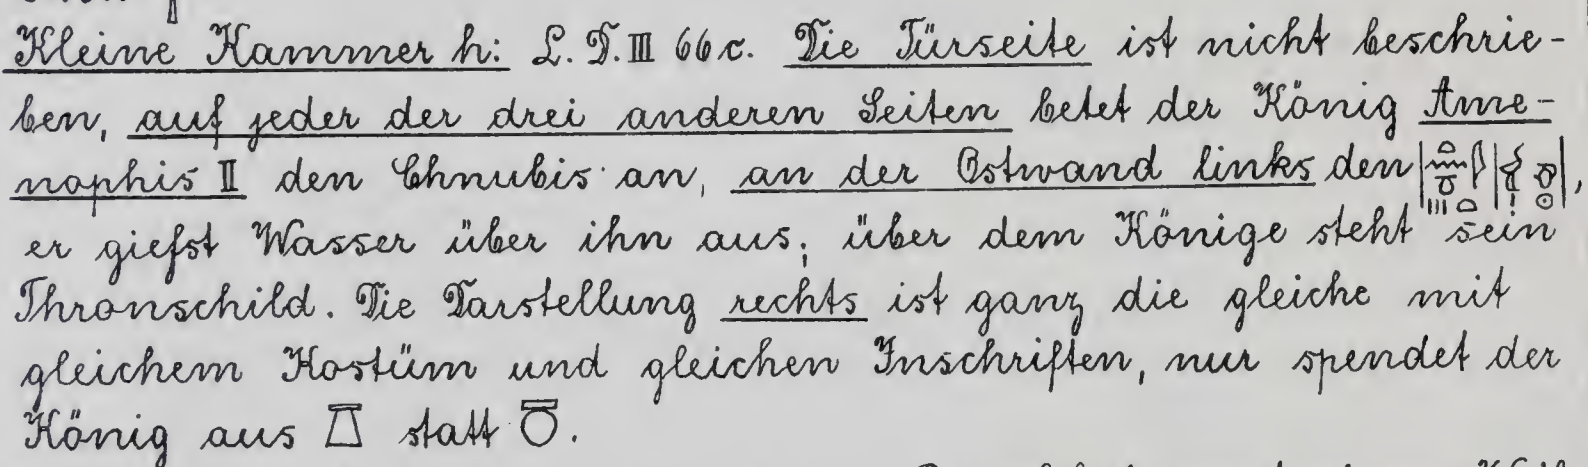 Kleine Kammer h: L. D. III 66 c. Die Türseite ist nicht beschrie-
ben, auf jeder der drei anderen Seiten betet der König Ame-
nophis II den Chnubis an, an der Ostwand links den
er giefst Wasser über ihn aus; über dem Könige steht sein
Thronschild. Die Darstellung rechts ist ganz die gleiche mit
gleichem Kostüm und gleichen Inschriften, nur spendet der
König aus statt.